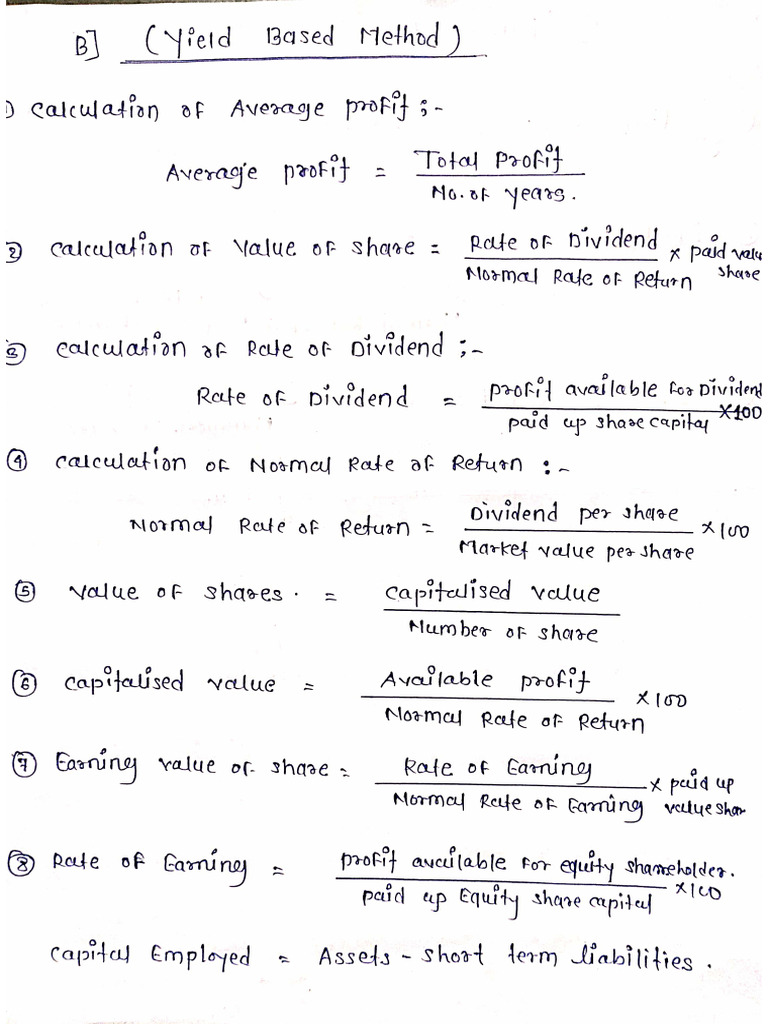 B] (Yield Based Method)
1) Calculation of Average profit :-
Average profit = Total Profit / No. of years.
2) Calculation of Value of share = Rate of Dividend / Normal Rate of Return × paid valu share
3) Calculation of Rate of Dividend :-
Rate of Dividend = profit available for Dividend / paid up share capital ×100
4) Calculation of Normal Rate of Return :-
Normal Rate of Return = Dividend per share / Market value per share ×100
5) Value of shares. = Capitalised value / Number of share
6) Capitalised value = Available profit / Normal Rate of Return ×100
7) Earning value of share = Rate of Earning / Normal Rate of Earning × paid up value shar
8) Rate of Earning = profit available for equity shareholder. / paid up Equity share capital ×100
Capital Employed = Assets - short term liabilities.